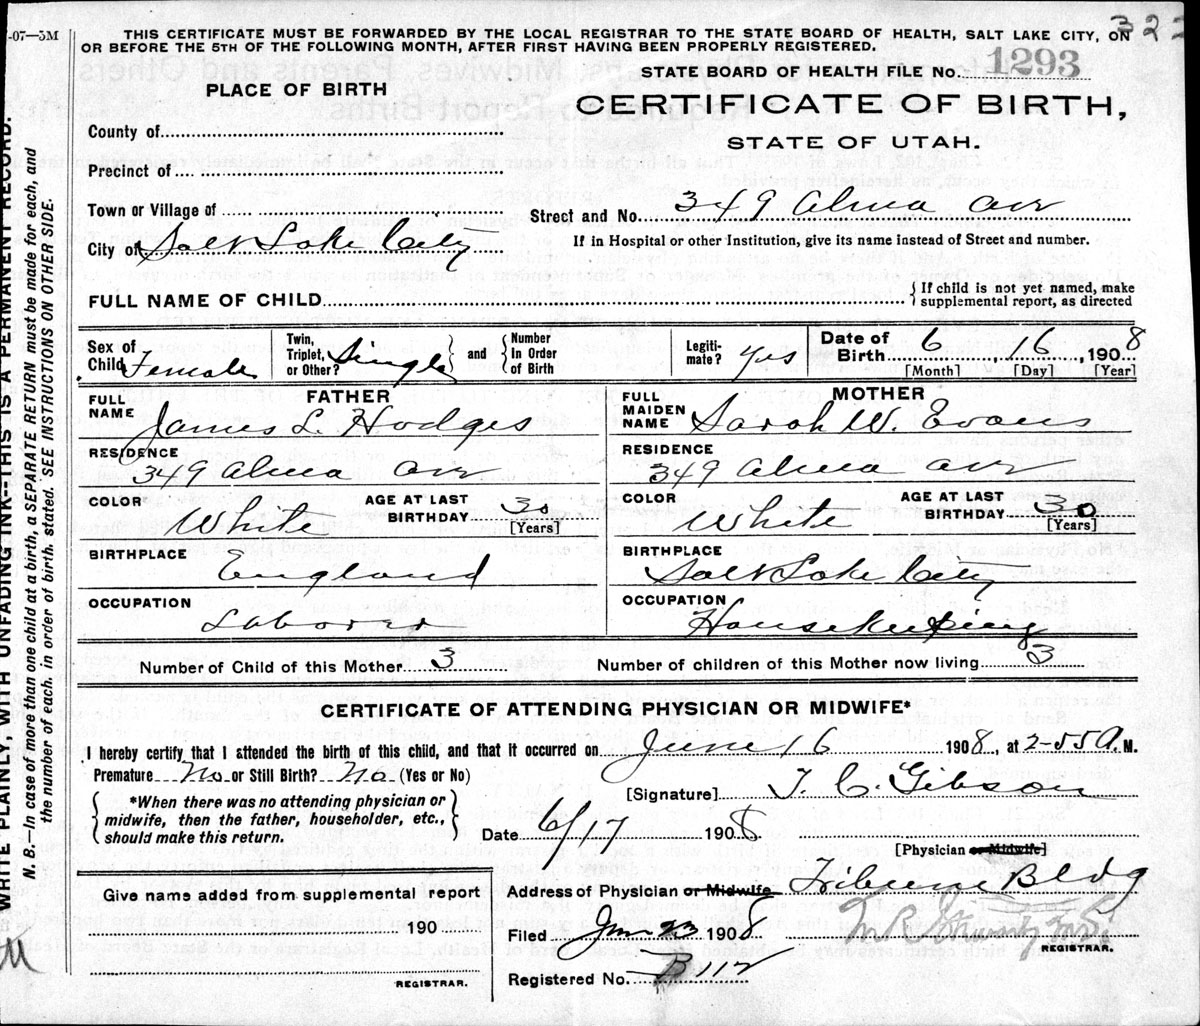 -07—5M
THIS CERTIFICATE MUST BE FORWARDED BY THE LOCAL REGISTRAR TO THE STATE BOARD OF HEALTH, SALT LAKE CITY, ON
OR BEFORE THE 5TH OF THE FOLLOWING MONTH, AFTER FIRST HAVING BEEN PROPERLY REGISTERED.
322
STATE BOARD OF HEALTH FILE NO. 1293
PLACE OF BIRTH
CERTIFICATE OF BIRTH,
STATE OF UTAH.
County of
Precinct of
Town or Village of
Street and No. 349 Alma Ave
City of Salt Lake City
If in Hospital or other Institution, give its name instead of Street and number.
FULL NAME OF CHILD
{ If child is not yet named, make
supplemental report, as directed
Sex of Child Female
Twin, Triplet, or Other? Single } and { Number In Order of Birth
Legitimate? yes
Date of Birth 6, 16, 1908
[Month] [Day] [Year]
FATHER
FULL NAME James L. Hodges
RESIDENCE 349 Alma Ave
COLOR White
AGE AT LAST BIRTHDAY 30 [Years]
BIRTHPLACE England
OCCUPATION Laborer
MOTHER
FULL MAIDEN NAME Sarah W. Evans
RESIDENCE 349 Alma Ave
COLOR White
AGE AT LAST BIRTHDAY 30 [Years]
BIRTHPLACE Salt Lake City
OCCUPATION Housekeeping
Number of Child of this Mother 3
Number of children of this Mother now living 3
CERTIFICATE OF ATTENDING PHYSICIAN OR MIDWIFE*
I hereby certify that I attended the birth of this child, and that it occurred on June 16 1908, at 2-55 A. M.
Premature No or Still Birth? No (Yes or No)
{ *When there was no attending physician or
midwife, then the father, householder, etc.,
should make this return. }
[Signature] T. C. Gibson
Date 6/17 1908
[Physician or Midwife]
Give name added from supplemental report
190
REGISTRAR.
Address of Physician or Midwife Tribune Bldg
Filed Jun 23 1908
REGISTRAR.
Registered No. B 112
WRITE PLAINLY, WITH UNFADING INK--THIS IS A PERMANENT RECORD.
N. B.—In case of more than one child at a birth, a SEPARATE RETURN must be made for each, and
the number of each, in order of birth, stated. SEE INSTRUCTIONS ON OTHER SIDE.